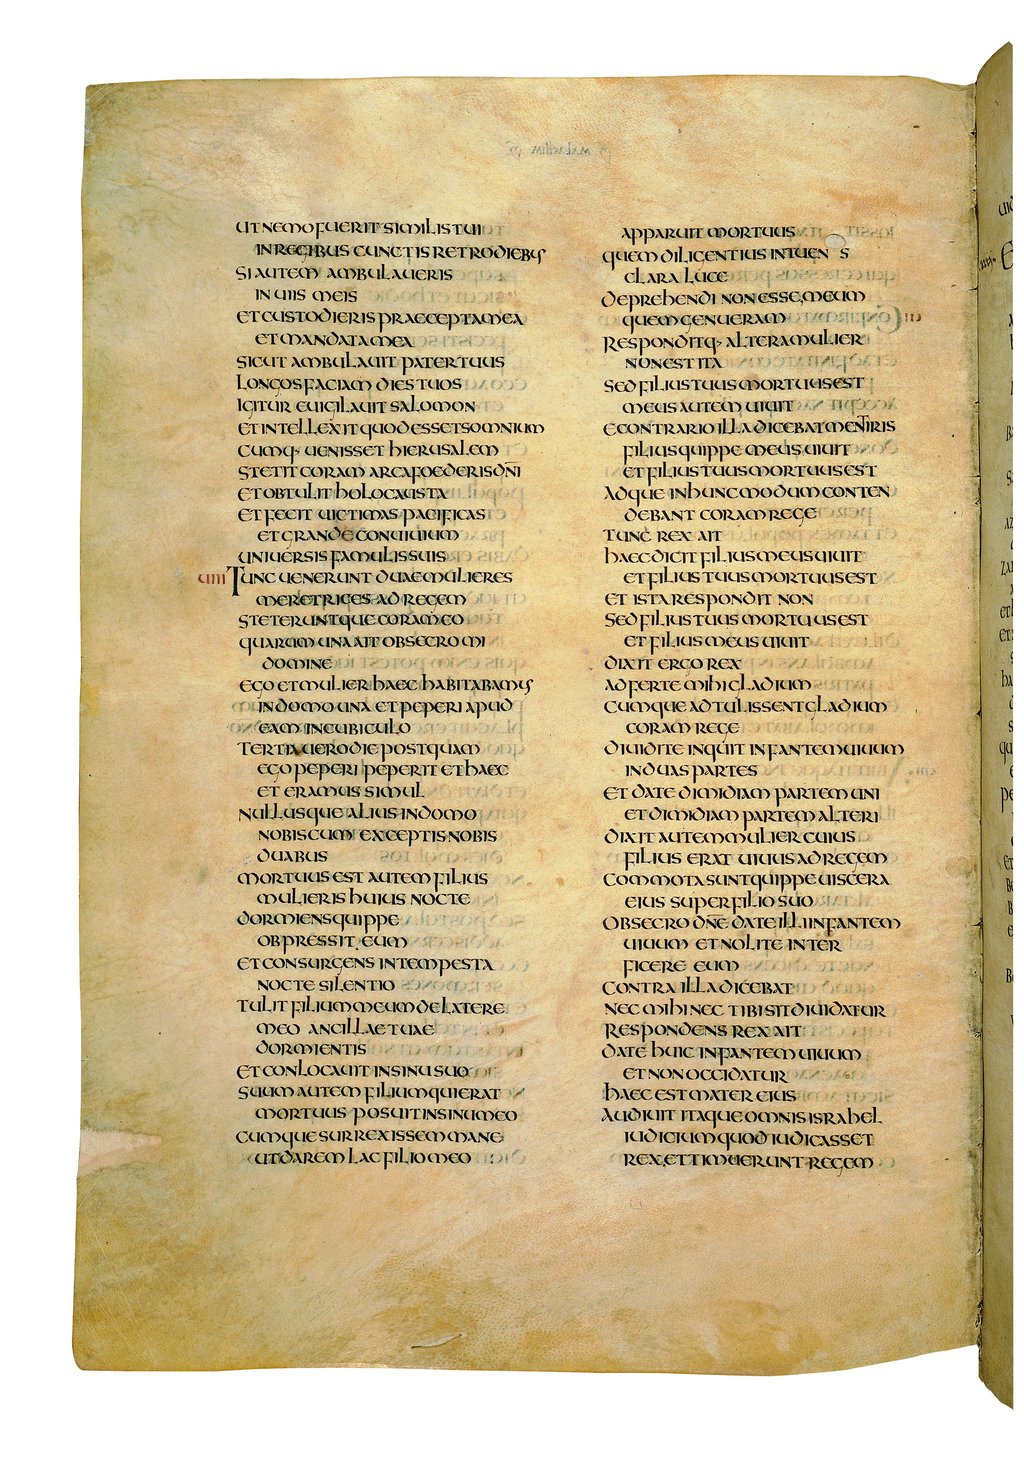 UT NEMO FUERIT SIMILIS TUI
IN REGIBUS CUNCTIS RETRO DIEBUS
SI AUTEM AMBULAUERIS
IN UIIS MEIS
ET CUSTODIERIS PRAECEPTA MEA
ET MANDATA MEA
SICUT AMBULAUIT PATER TUUS
LONGOS FACIAM DIES TUOS
IGITUR EUIGILAUIT SALOMON
ET INTELLEXIT QUOD ESSET SOMNIUM
CUMQ· UENISSET HIERUSALEM
STETIT CORAM ARCA FOEDERIS DN̄I
ET OBTULIT HOLOCAUSTA
ET FECIT UICTIMAS PACIFICAS
ET GRANDE CONUIUIUM
UNIUERSIS FAMULIS SUIS
UIIII TUNC UENERUNT DUAE MULIERES
MERETRICES AD REGEM
STETERUNTQUE CORAM EO
QUARUM UNA AIT OBSECRO MI
DOMINE
EGO ET MULIER HAEC HABITABAMUS
IN DOMO UNA ET PEPERI APUD
EAM IN CUBICULO
TERTIA UERO DIE POSTQUAM
EGO PEPERI PEPERIT ET HAEC
ET ERAMUS SIMUL
NULLUSQUE ALIUS IN DOMO
NOBISCUM EXCEPTIS NOBIS
DUABUS
MORTUUS EST AUTEM FILIUS
MULIERIS HUIUS NOCTE
DORMIENS QUIPPE
OBPRESSIT EUM
ET CONSURGENS INTEMPESTA
NOCTE SILENTIO
TULIT FILIUM MEUM DE LATERE
MEO ANCILLAE TUAE
DORMIENTIS
ET CONLOCAUIT IN SINU SUO
SUUM AUTEM FILIUM QUI ERAT
MORTUUS POSUIT IN SINU MEO
CUMQUE SURREXISSEM MANE
UT DAREM LAC FILIO MEO
APPARUIT MORTUUS
QUEM DILIGENTIUS INTUEN S
CLARA LUCE
DEPREHENDI NON ESSE MEUM
QUEM GENUERAM
RESPONDITQ· ALTERA MULIER
NON EST ITA
SED FILIUS TUUS MORTUUS EST
MEUS AUTEM UIUIT
E CONTRARIO ILLA DICEBAT MENTIRIS
FILIUS QUIPPE MEUS UIUIT
ET FILIUS TUUS MORTUUS EST
ADQUE IN HUNC MODUM CONTEN
DEBANT CORAM REGE
TUNC REX AIT
HAEC DICIT FILIUS MEUS UIUIT
ET FILIUS TUUS MORTUUS EST
ET ISTA RESPONDIT NON
SED FILIUS TUUS MORTUUS EST
ET FILIUS MEUS UIUIT
DIXIT ERGO REX
ADFERTE MIHI GLADIUM
CUMQUE ADTULISSENT GLADIUM
CORAM REGE
DIUIDITE INQUIT INFANTEM UIUUM
IN DUAS PARTES
ET DATE DIMIDIAM PARTEM UNI
ET DIMIDIAM PARTEM ALTERI
DIXIT AUTEM MULIER CUIUS
FILIUS ERAT UIUUS AD REGEM
COMMOTA SUNT QUIPPE UISCERA
EIUS SUPER FILIO SUO
OBSECRO DN̄E DATE ILLI INFANTEM
UIUUM ET NOLITE INTER
FICERE EUM
CONTRA ILLA DICEBAT
NEC MIHI NEC TIBI SIT DIUIDATUR
RESPONDENS REX AIT
DATE HUIC INFANTEM UIUUM
ET NON OCCIDATUR
HAEC EST MATER EIUS
AUDIUIT ITAQUE OMNIS ISRAHEL
IUDICIUM QUOD IUDICASSET
REX ET TIMUERUNT REGEM